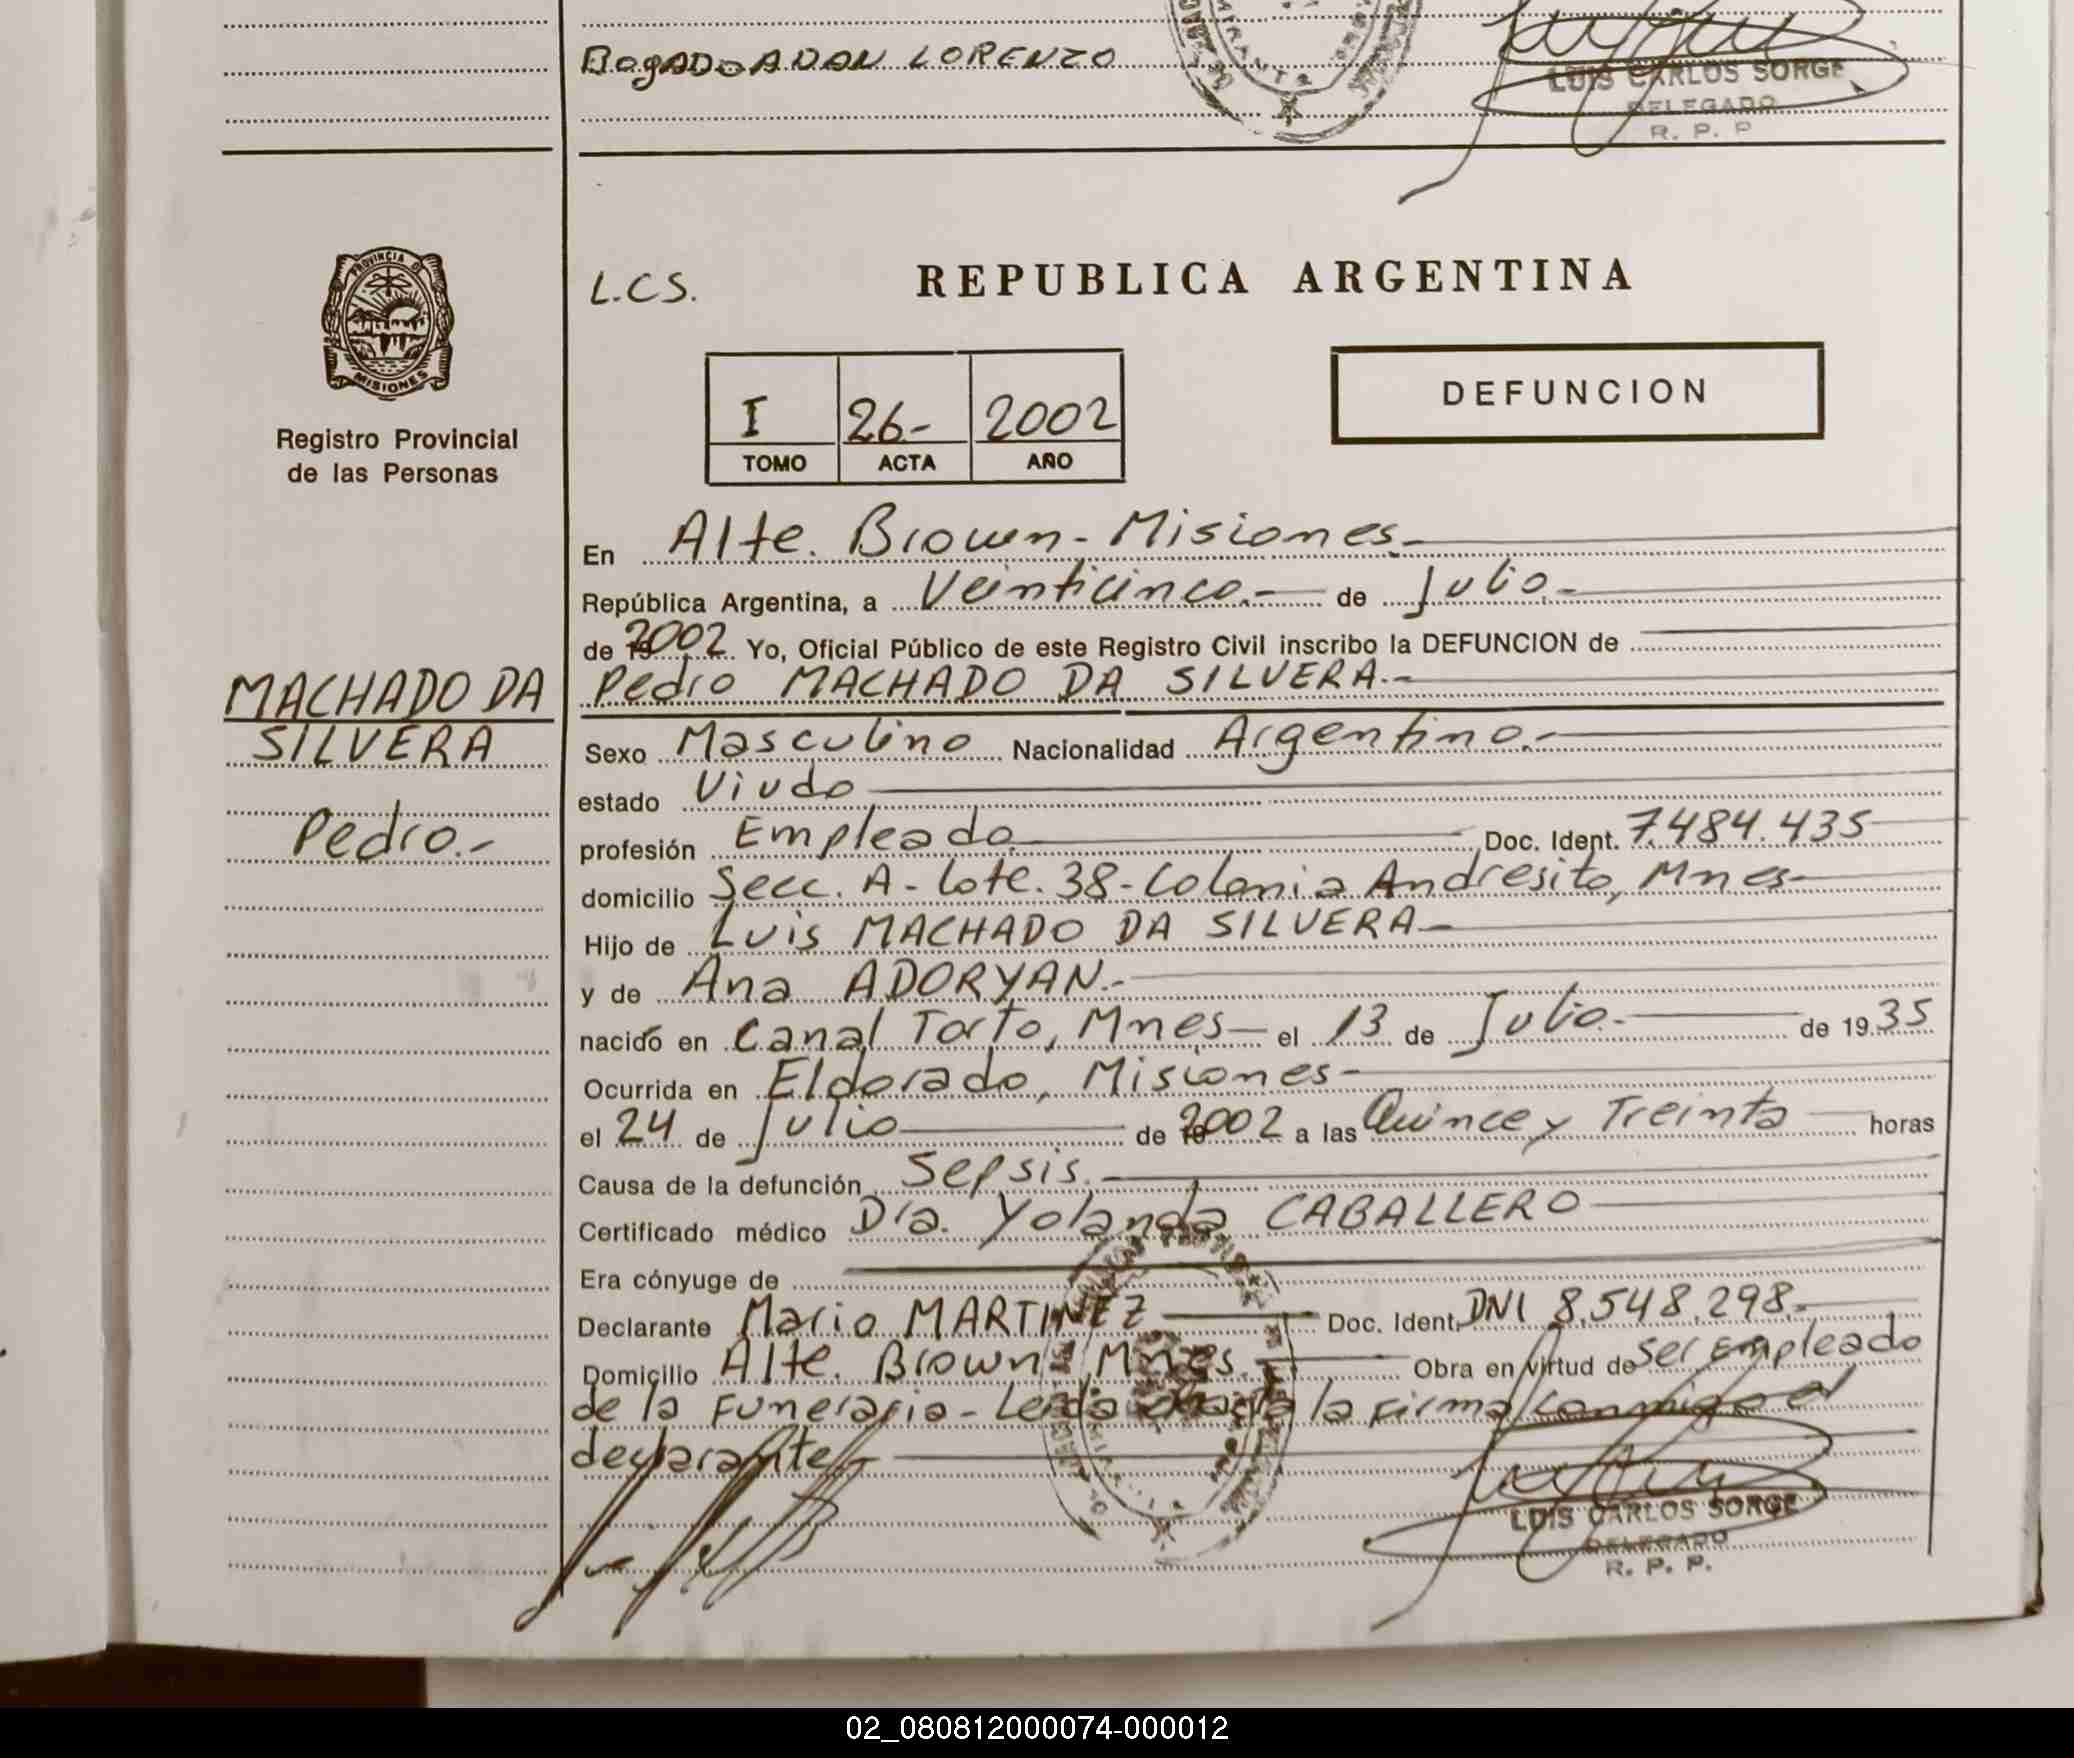 BogADO ADAN LORENZO
LUIS CARLOS SORGE
DELEGADO
R. P. P
PROVINCIA DE
MISIONES
Registro Provincial
de las Personas
L.C.S.
REPUBLICA ARGENTINA
I 26- 2002
TOMO ACTA AÑO
DEFUNCION
En Alte. Brown - Misiones.-
República Argentina, a Veinticinco.- de Julio.-
de 2002 Yo, Oficial Público de este Registro Civil inscribo la DEFUNCION de
Pedro MACHADO DA SILVERA.-
MACHADO DA
SILVERA
Pedro.-
Sexo Masculino Nacionalidad Argentino.-
estado Viudo
profesión Empleado Doc. Ident. 7.484.435
domicilio Secc. A - Lote. 38 - Colonia Andresito, Mnes-
Hijo de Luis MACHADO DA SILVERA-
y de Ana ADORYAN.-
nacido en Canal Torto, Mnes- el 13 de Julio.- de 19 35
Ocurrida en Eldorado, Misiones-
el 24 de Julio de 2002 a las Quince y Treinta horas
Causa de la defunción Sepsis.
Certificado médico Dra. Yolanda CABALLERO
Era cónyuge de
Declarante Mario MARTINEZ Doc. Ident. DNI 8.548.298.-
Domicilio Alte. Brown Mnes. Obra en virtud de ser Empleado
de la Funeraria - Leida el acta la firma conmigo el
declarante.-
LUIS CARLOS SORGE
DELEGADO
R. P. P.
02_080812000074-000012